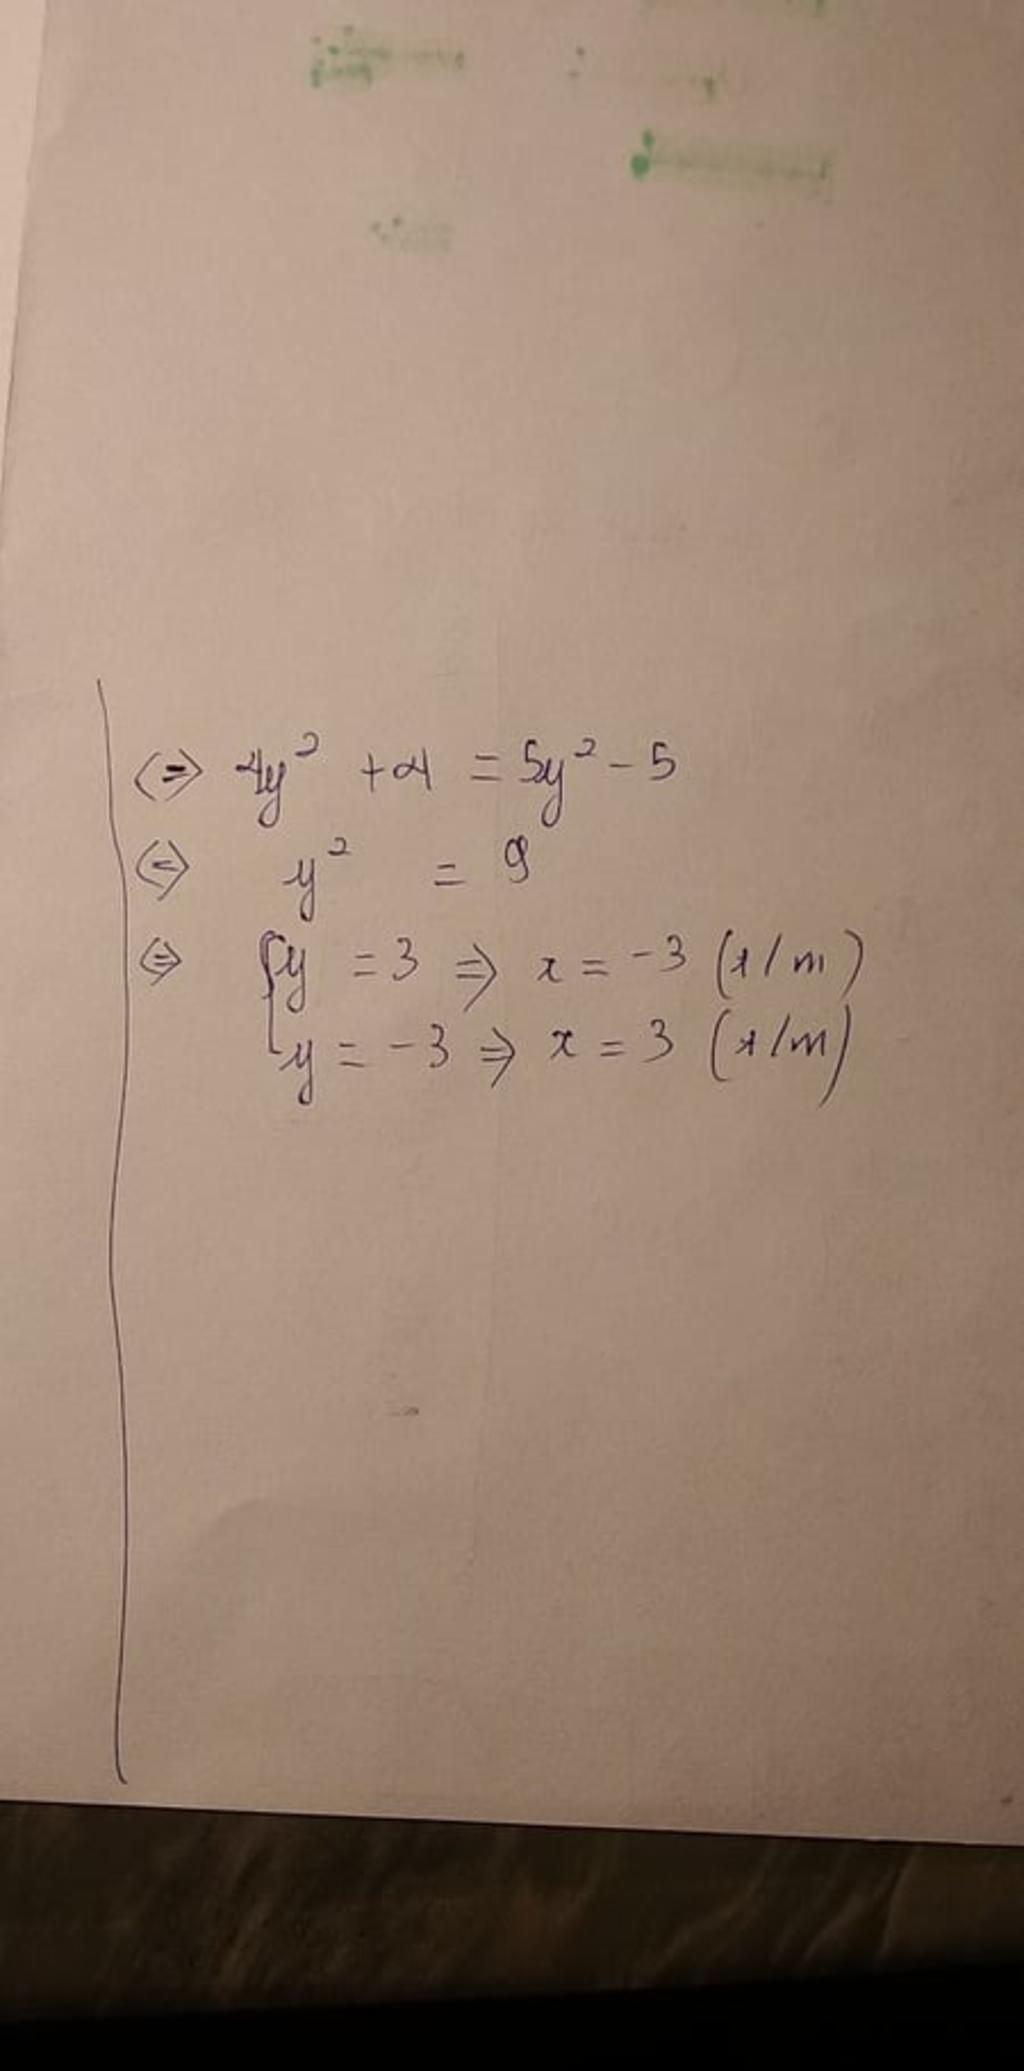 ⇔ 4y² + 4 = 5y² - 5
⇔ y² = 9
⇔ [y = 3 ⇒ x = -3 (t/m)
[y = -3 ⇒ x = 3 (t/m)